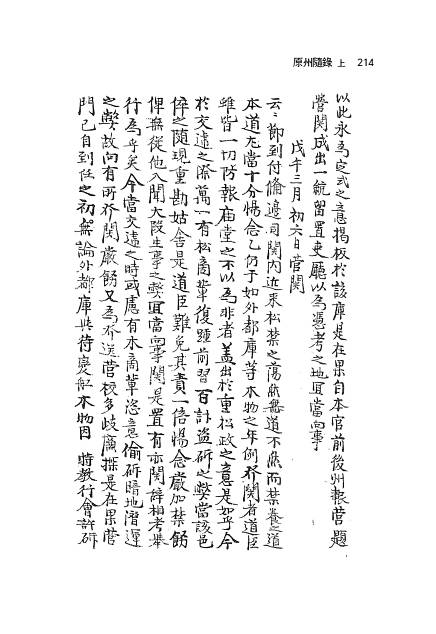 原州隨錄 上 214
以此永爲定式之意揭板於該庫是在果自本官前後州報營題
營關成出一䡖留置吏廳以爲憑考之地宜當向事
戊午三月初六日營關
云云節到付備邊司關內近來松禁之蕩然無道不然而禁養之道
本道尤當十分惕念乙仍于如外都庫等木物之年例分關者道臣
雖皆一切防報庙堂之不以爲非者盖出於重松政之意是如乎今
於交遞之際萬一有松商輩復踵前習百計盜斫之弊當該邑
倅之隨現重勘姑舍是道臣難免其責一倍惕念嚴加禁飭
俾無從他入聞大段生事之弊宜當向事關是置有亦關辭相考擧
行爲乎矣今當交遞之時或慮有木商輩恣意偷斫暗地潛運
之弊故向有所分關嚴飭又爲分送營校多岐廣探是在果營
門已自到任之初無論外都庫與待變船木物因 時敎行會許斫